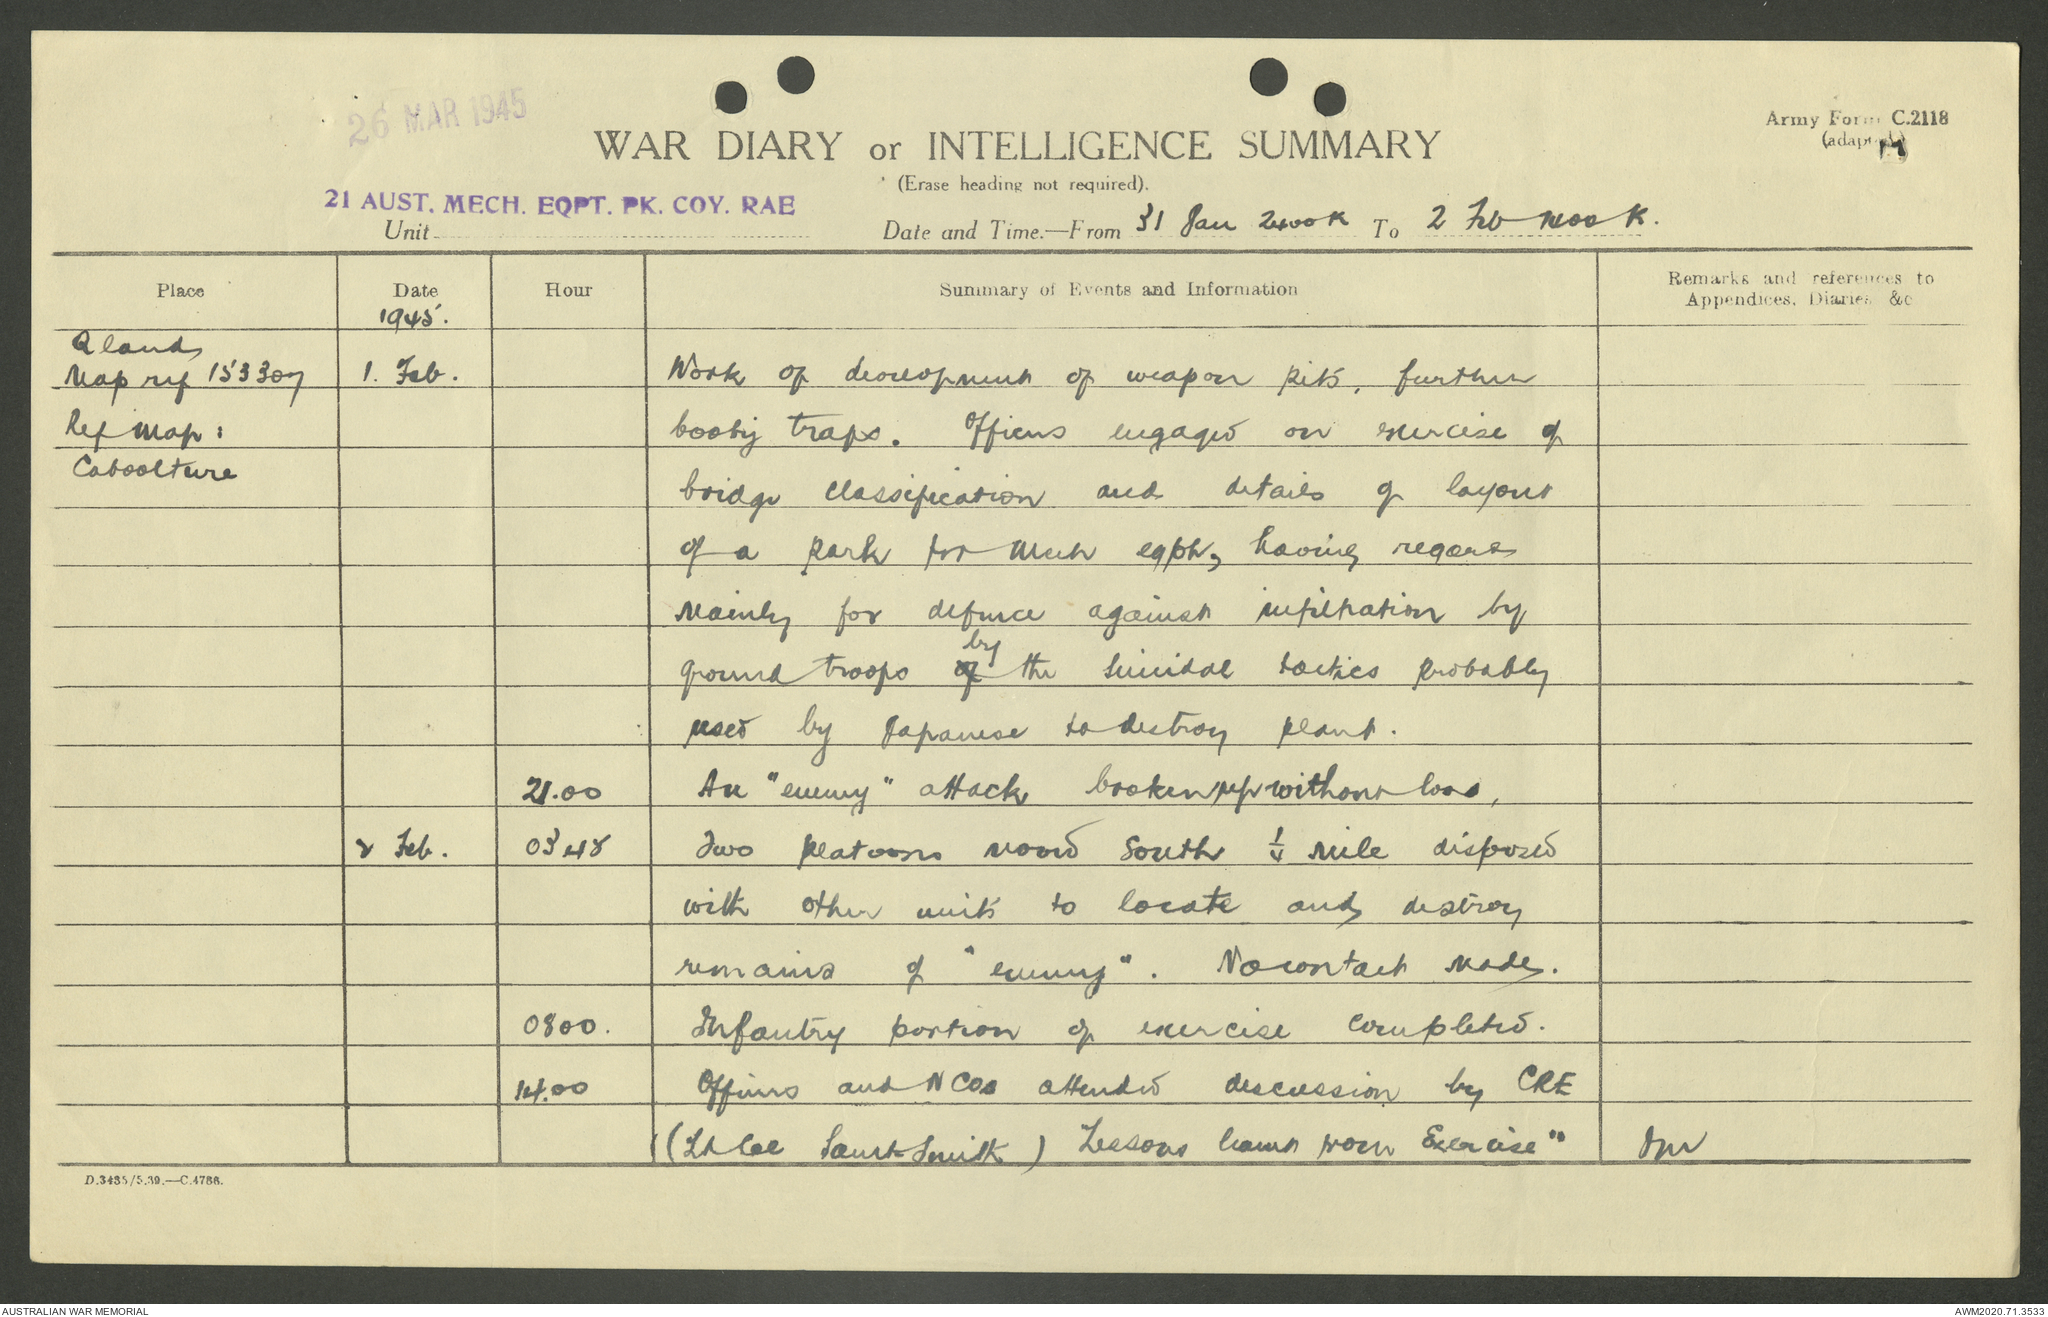 26 MAR 1945
WAR DIARY or INTELLIGENCE SUMMARY
Army Form C.2118
(adapted)
(Erase heading not required).
21 AUST. MECH. EQPT. PK. COY. RAE
Unit
Date and Time.—From 31 Jan 2400K To 2 Feb K.
Place
Date
Hour
Summary of Events and Information
Remarks and references to
Appendices, Diaries &c
1945.
Qland
Map ref 153307 1. Feb. Work of development of weapon pits, further
Ref Map: booby traps. Officers engaged on exercise of
Caboolture bridge classification and details of layout
of a park for Mech eqpt, having regard
mainly for defence against infiltration by
ground troops by the suicidal tactics probably
used by Japanese to destroy plant.
21.00 An "enemy" attack broken up without loss,
2 Feb. 0345 Two platoons moved South ¼ mile disposed
with other units to locate and destroy
remains of "enemy". No contact made.
0800. Infantry portion of exercise completed.
14.00 Officers and NCOs attended discussion by CRE
(Lt Col Smith) Lessons learnt from Exercise"
D.3435/5.39.—C.4786.
AUSTRALIAN WAR MEMORIAL
AWM2020.71.3533